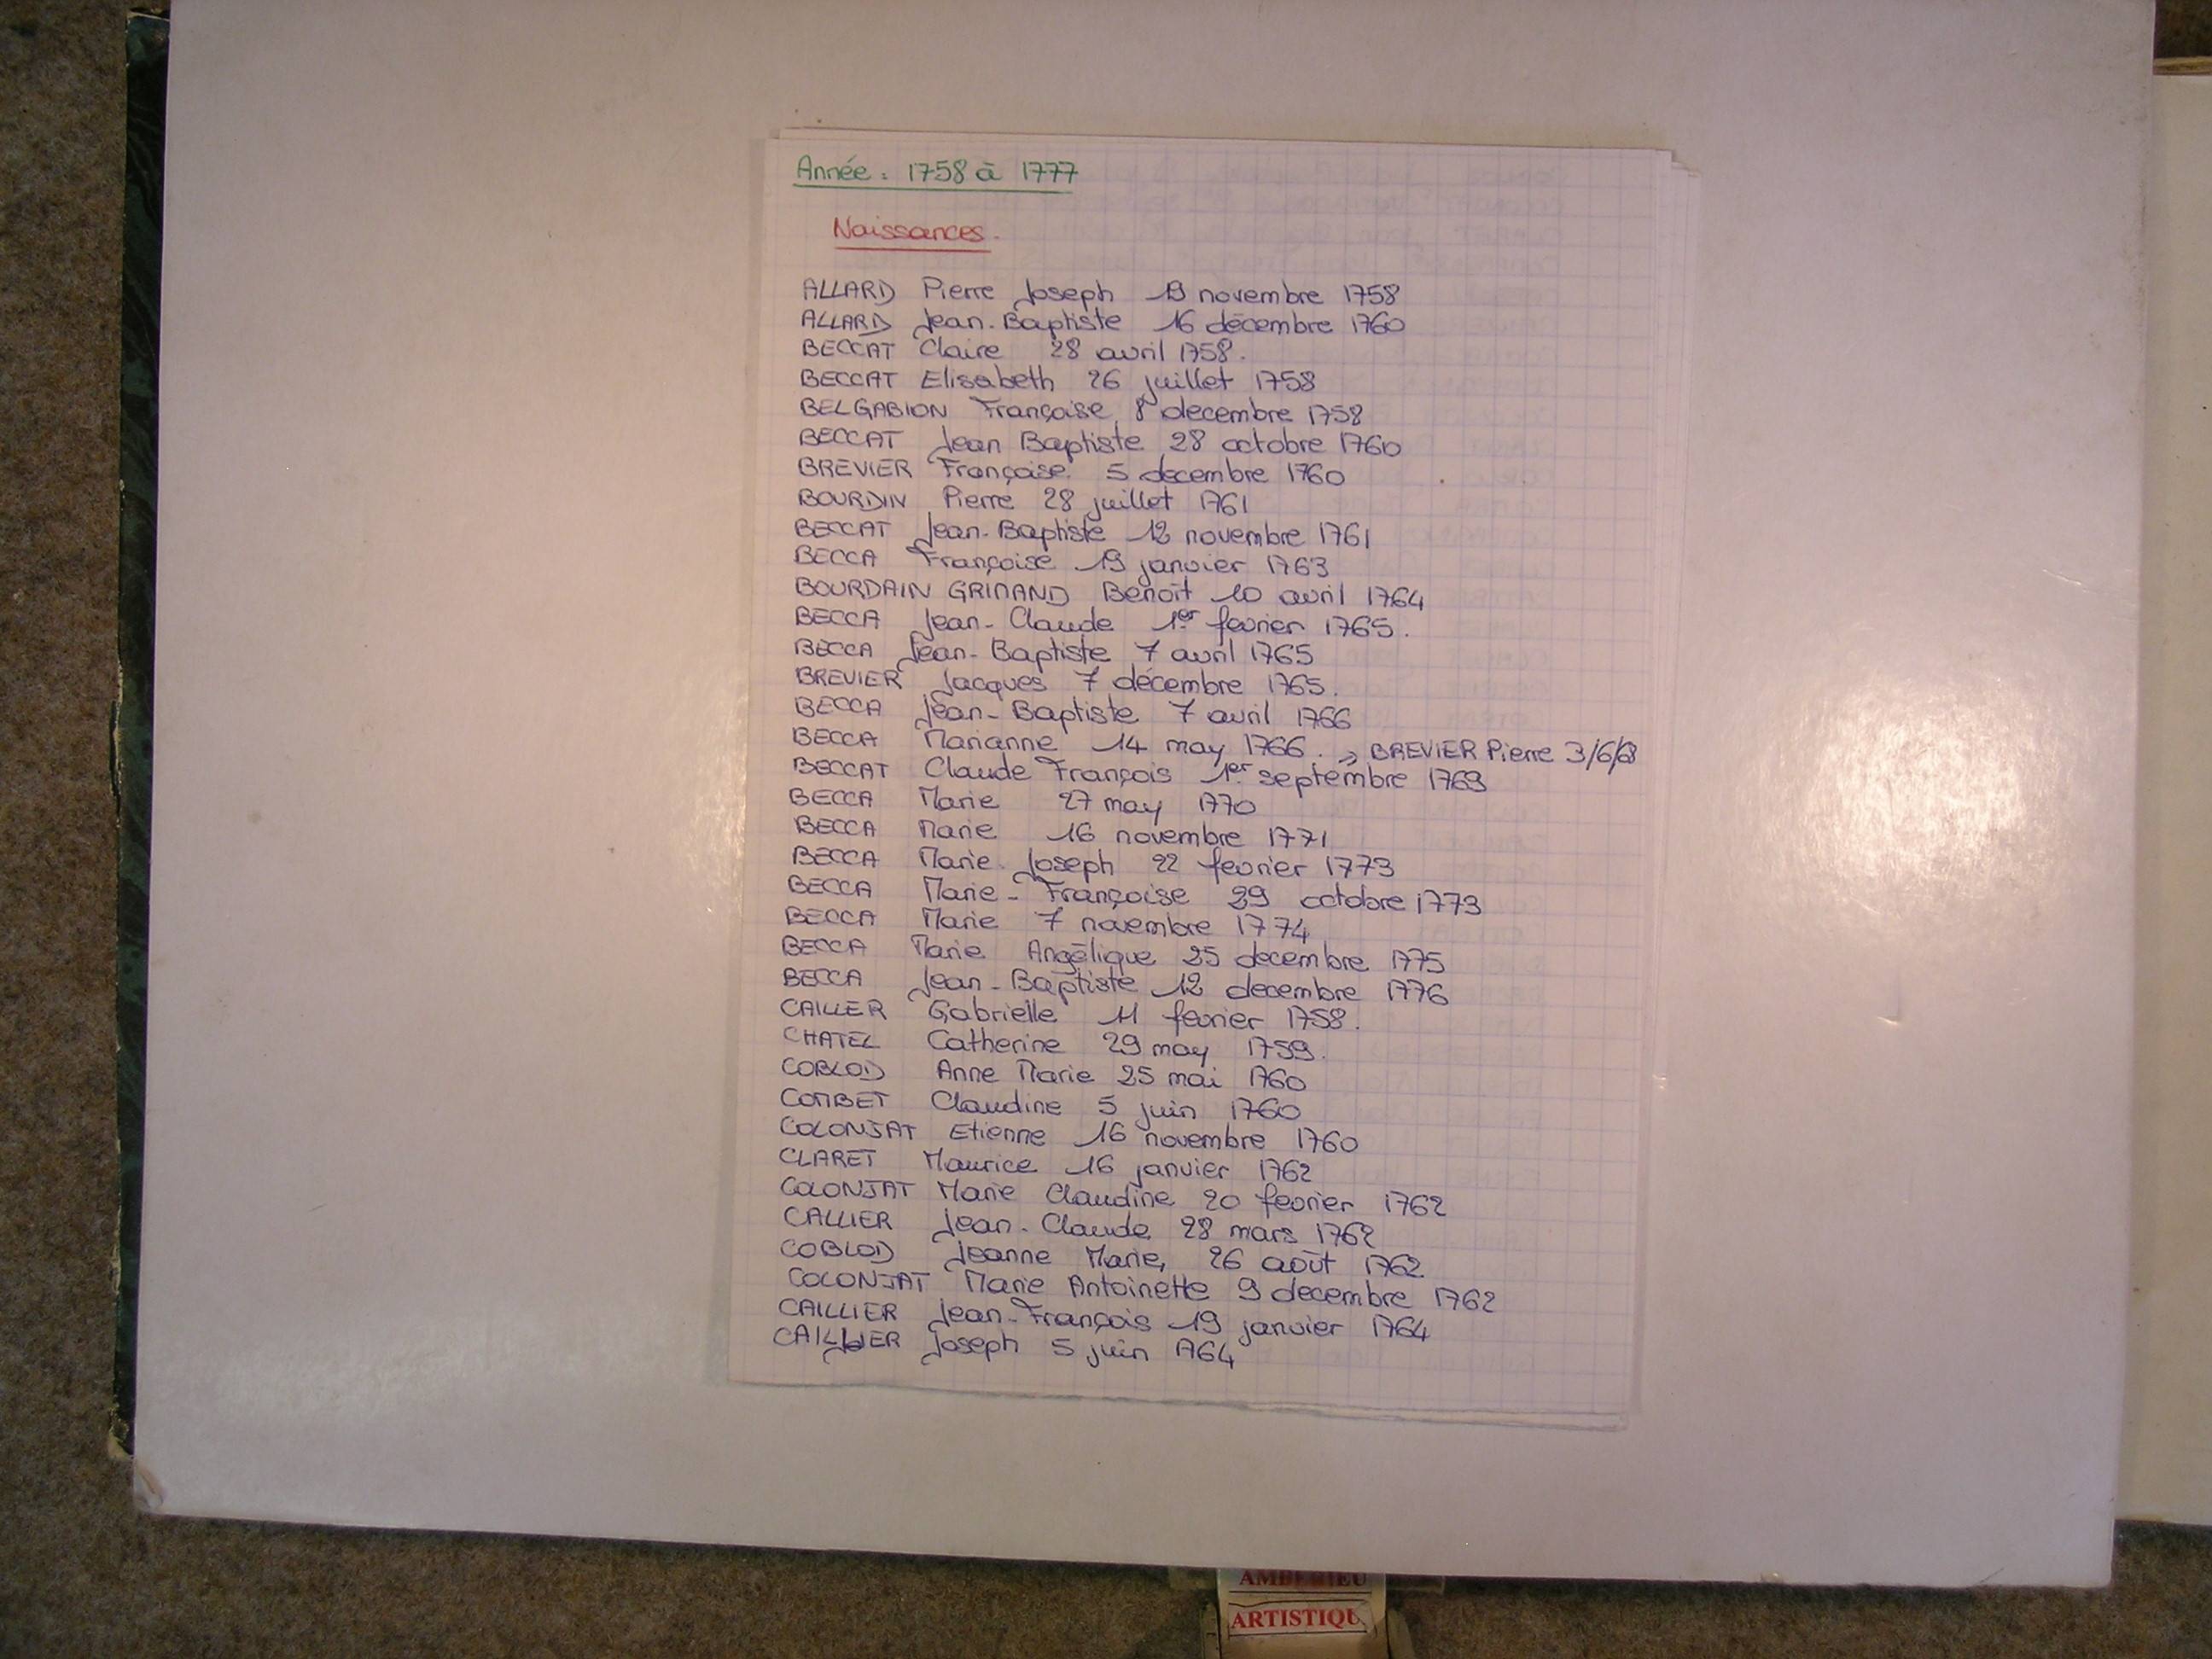 Année : 1758 à 1777
Naissances.
ALLARD Pierre Joseph 19 novembre 1758
ALLARD Jean-Baptiste 16 décembre 1760
BECCAT Claire 28 avril 1758.
BECCAT Elisabeth 26 juillet 1758
BELGABION Françoise 8 decembre 1758
BECCAT Jean Baptiste 28 octobre 1760
BREVIER Françoise 5 decembre 1760
BOURDIN Pierre 28 juillet 1761
BECCAT Jean-Baptiste 12 novembre 1761
BECCA Françoise 19 janvier 1763
BOURDAIN GRIMAND Benoît 10 avril 1764
BECCA Jean-Claude 1er fevrier 1765.
BECCA Jean-Baptiste 7 avril 1765
BREVIER Jacques 7 décembre 1765.
BECCA Jean-Baptiste 7 avril 1766
BECCA Marianne 14 may 1766. → BREVIER Pierre 3/6/68
BECCAT Claude François 1er septembre 1769
BECCA Marie 27 may 1770
BECCA Marie 16 novembre 1771
BECCA Marie Joseph 22 fevrier 1773
BECCA Marie-Françoise 29 octobre 1773
BECCA Marie 7 novembre 1774
BECCA Marie Angélique 25 decembre 1775
BECCA Jean-Baptiste 12 decembre 1776
CAILLER Gabrielle 11 fevrier 1758.
CHATEL Catherine 29 may 1759.
COBLOD Anne Marie 25 mai 1760
COMBET Claudine 5 juin 1760
COLONJAT Etienne 16 novembre 1760
CLARET Maurice 16 janvier 1762
COLONJAT Marie Claudine 20 fevrier 1762
CALLIER Jean-Claude 28 mars 1762
COBLOD Jeanne Marie, 26 août 1762
COLONJAT Marie Antoinette 9 decembre 1762
CAILLIER Jean-François 19 janvier 1764
CAILLIER Joseph 5 juin 1764
AMBERIEU
ARTISTIQU